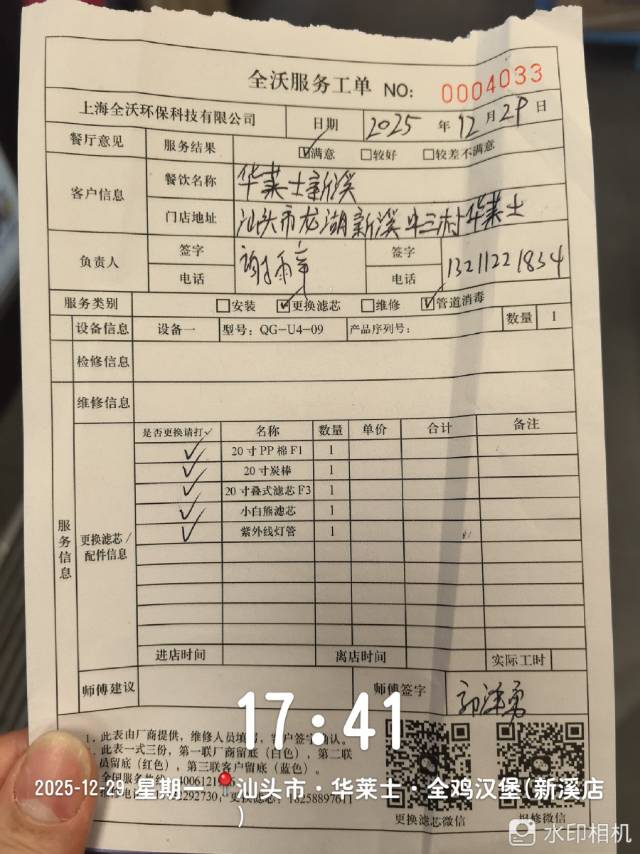 全沃服务工单 NO: 0004033
上海全沃环保科技有限公司 日期 2025 年 12 月 29 日
餐厅意见 服务结果 ☑满意 □较好 □较差不满意
客户信息 餐饮名称 华莱士新溪
门店地址 汕头市龙湖新溪中三村华莱士
负责人 签字 签字
电话 电话 13211221834
服务类别 □安装 ☑更换滤芯 □维修 ☑管道消毒
设备信息 设备一 型号: QG-U4-09 产品序列号: 数量 1
检修信息
维修信息
服务信息 更换滤芯/配件信息
是否更换请打✓ 名称 数量 单价 合计 备注
✓ 20寸PP棉F1 1
✓ 20寸炭棒 1
✓ 20寸叠式滤芯F3 1
✓ 小白熊滤芯 1
✓ 紫外线灯管 1
进店时间 离店时间 实际工时
师傅建议 师傅签字
17:41
1、此表由厂商提供，维修人员填写，客户签字确认。
此表一式三份，第一联厂商留底（白色），第二联
员留底（红色），第三联客户留底（蓝色）。
全国服务热线
2025-12-29 星期一 汕头市·华莱士·全鸡汉堡(新溪店)
更换滤芯微信 报修微信
水印相机